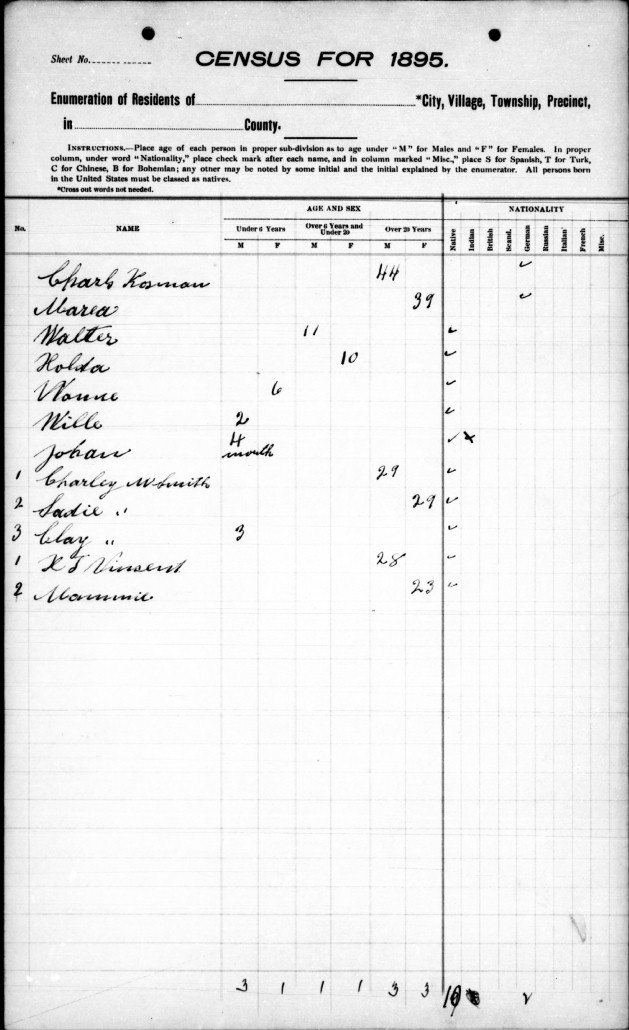 Sheet No.
CENSUS FOR 1895.
Enumeration of Residents of *City, Village, Township, Precinct,
in County.
INSTRUCTIONS.—Place age of each person in proper sub-division as to age under "M" for Males and "F" for Females. In proper
column, under word "Nationality," place check mark after each name, and in column marked "Misc.," place S for Spanish, T for Turk,
C for Chinese, B for Bohemian; any other may be noted by some initial and the initial explained by the enumerator. All persons born
in the United States must be classed as natives.
*Cross out words not needed.
No. NAME AGE AND SEX NATIONALITY
Under 6 Years Over 6 Years and Under 20 Over 20 Years
M F M F M F Native Indian British Scand. German Russian Italian French Misc.
Charls Kosman 44 ✓
Marea 39 ✓
Walter 11 ✓
Holda 10 ✓
6 ✓
Wille 2 ✓
Johan 4 month ✓
1 Charley W Smith 29 ✓
2 Sadie " 29 ✓
3 Clay " 3 ✓
1 Vinsent 28 ✓
2 Mammie 23 ✓
3 1 1 1 3 3 2